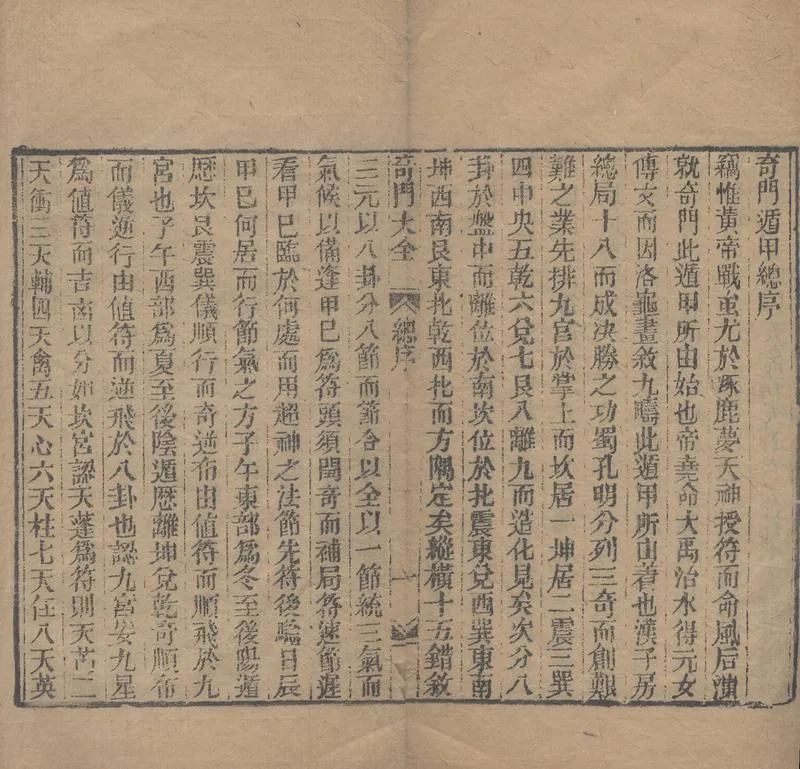 奇門遁甲總序
竊惟黃帝戰蚩尤於涿鹿夢天神授符而命風后演
就奇門此遁甲所由始也帝堯命大禹治水得元女
傳文而因洛龜畫敘九疇此遁甲所由著也漢子房
總局十八而成决勝之功蜀孔明分列三奇而創艱
難之業先排九宮於掌上而坎居一坤居二震三巽
四中央五乾六兌七艮八離九而造化見矣次分八
卦於盤中而離位於南坎位於北震東兌西巽東南
坤西南艮東北乾西北而方隅定矣縱橫十五錯敘
奇門大全 總序 一
三元以八卦分八節而節合以全以一節統三氣而
氣候以備逢甲巳為符頭須閏奇而補局符速節遲
看甲巳臨於何處而用超神之法節先符後驗日辰
甲巳何居而行節氣之方子午東部為冬至後陽遁
歷坎艮震巽儀順行而奇逆布由値符而順飛於九
宮也子午西部為夏至後陰遁歷離坤兌乾奇順布
而儀逆行由値符而逆飛於八卦也認九宮妄九星
為値符而吉凶以分如坎宮認天蓬為符則天芮二
天衝三天輔四天禽五天心六天柱七天任八天英